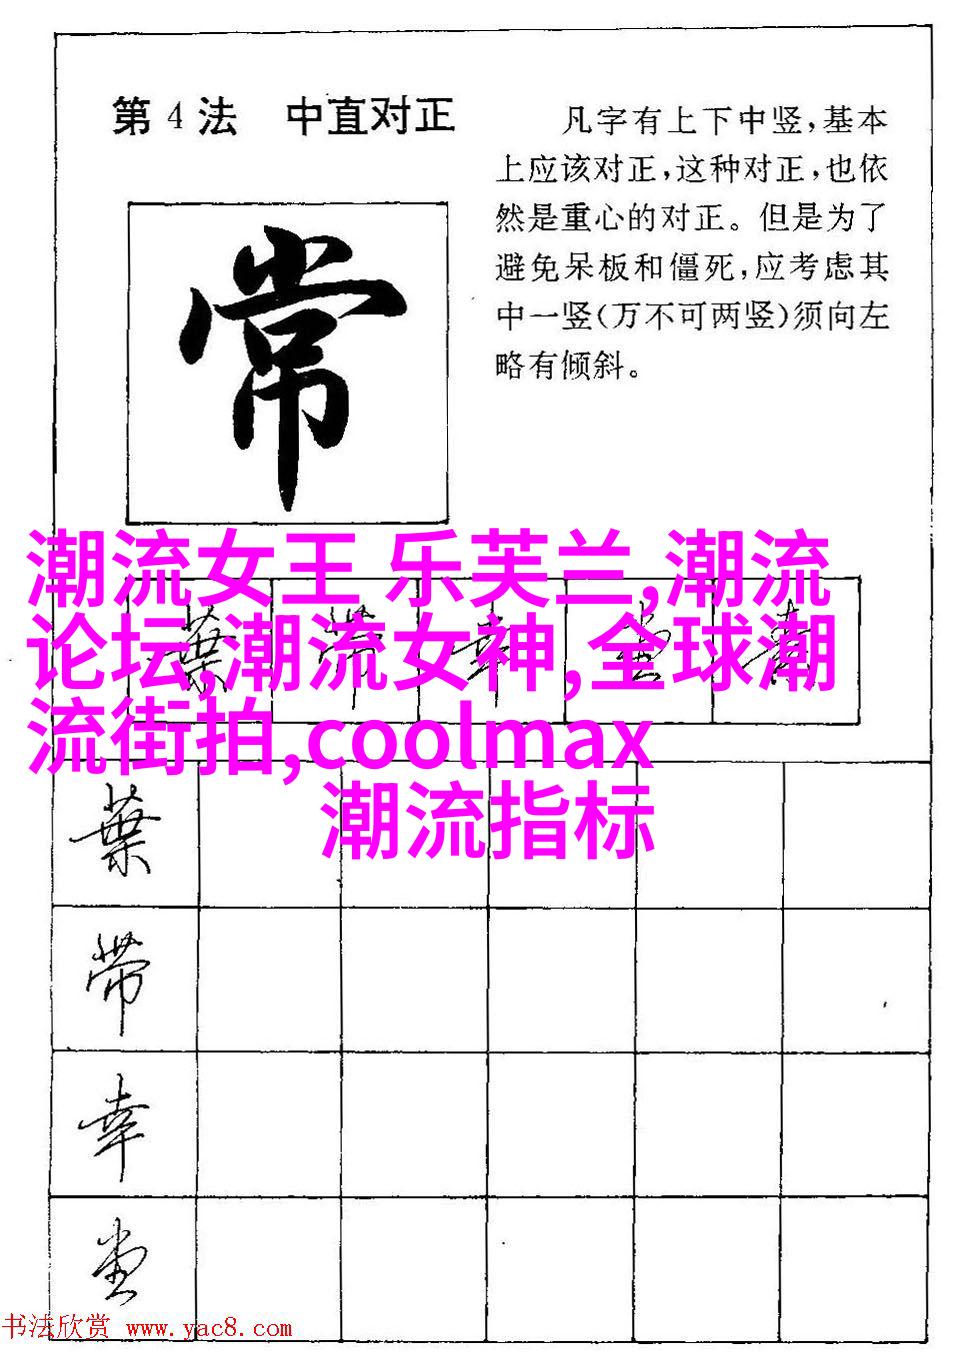 第4法 中直对正
凡字有上下中竖,基本
上应该对正,这种对正,也依
然是重心的对正。但是为了
避免呆板和僵死,应考虑其
中一竖(万不可两竖)须向左
略有倾斜。
常
潮流女王 乐芙兰,潮流
论坛,潮流女神,全球潮
流街拍,coolmax
潮流指标
葉 带 幸 堂
葉
带
幸
堂
书法欣赏 www.yac8.com